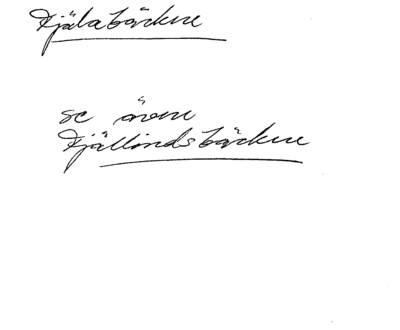 Fjälabäcken
se även
Fjällindsbäcken